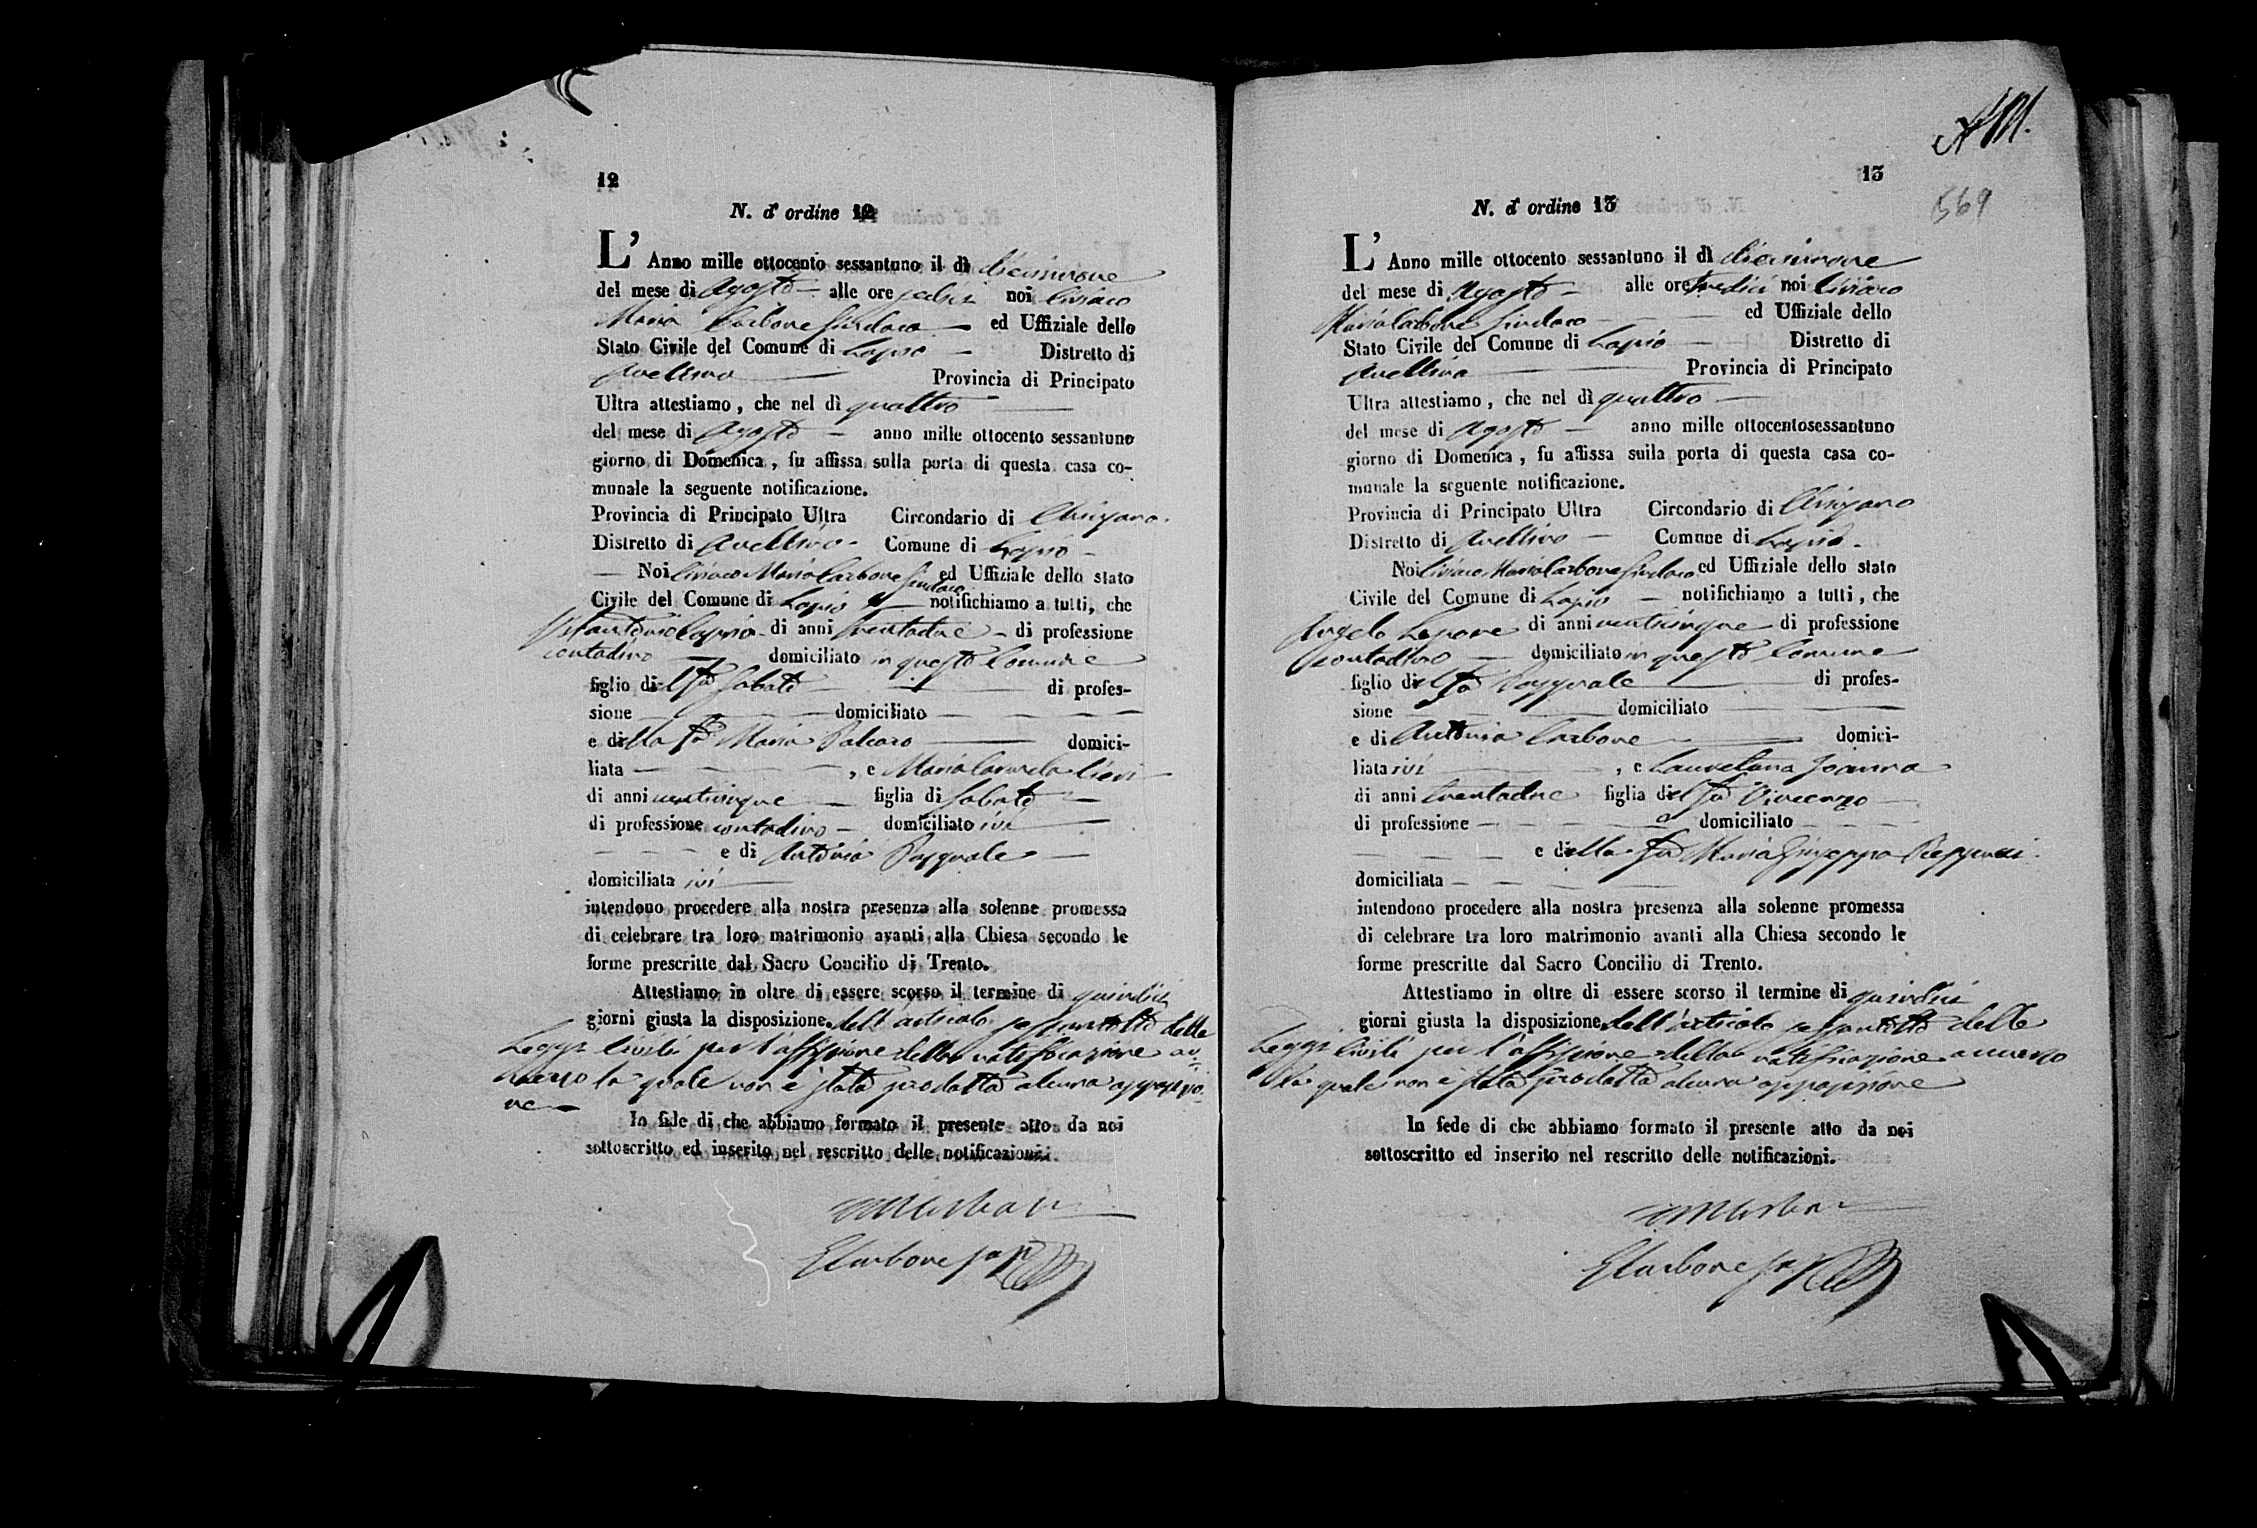 12
N. d' ordine 12
L' Anno mille ottocento sessantuno il dì diciannove
del mese di Agosto alle ore sedici noi Ciriaco
Maria Carbone Sindaco ed Uffiziale dello
Stato Civile del Comune di Lapio Distretto di
Avellino Provincia di Principato
Ultra attestiamo, che nel dì quattro
del mese di Agosto anno mille ottocento sessantuno
giorno di Domenica, fu affissa sulla porta di questa casa co-
munale la seguente notificazione.
Provincia di Principato Ultra Circondario di Chiusano.
Distretto di Avellino Comune di Lapio
Noi Ciriaco Maria Carbone Sindaco ed Uffiziale dello stato
Civile del Comune di Lapio notifichiamo a tutti, che
di anni trentadue di professione
contadino domiciliato in questo Comune
figlio del fu Sabato di profes-
sione domiciliato
e della fu Maria domici-
liata , e Maria Carmela
di anni venticinque figlia di Sabato
di professione contadino domiciliato ivi
e di Antonia Pasquale
domiciliata ivi
intendono procedere alla nostra presenza alla solenne promessa
di celebrare tra loro matrimonio avanti alla Chiesa secondo le
forme prescritte dal Sacro Concilio di Trento.
Attestiamo in oltre di essere scorso il termine di quindici
giorni giusta la disposizione dell'articolo sessantotto delle
Leggi Civili per l'affissione della notificazione av-
verso la quale non è stata prodotta alcuna opposizio-
ne
In fide di che abbiamo formato il presente atto da noi
sottoscritto ed inserito nel rescritto delle notificazioni.
Carbone
13
569
N. d' ordine 13
L' Anno mille ottocento sessantuno il dì diciannove
del mese di Agosto alle ore tredici noi Ciriaco
Maria Carbone Sindaco ed Uffiziale dello
Stato Civile del Comune di Lapio Distretto di
Avellino Provincia di Principato
Ultra attestiamo, che nel dì quattro
del mese di Agosto anno mille ottocentosessantuno
giorno di Domenica, fu affissa sulla porta di questa casa co-
munale la seguente notificazione.
Provincia di Principato Ultra Circondario di Chiusano
Distretto di Avellino Comune di Lapio
Noi Ciriaco Maria Carbone Sindaco ed Uffiziale dello stato
Civile del Comune di Lapio notifichiamo a tutti, che
Angelo Lepore di anni venticinque di professione
contadino domiciliato in questo Comune
figlio del fu Pasquale di profes-
sione domiciliato
e di Antonia Carbone domici-
liata ivi , e Lauretana Joanna
di anni trentadue figlia del fu Vincenzo
di professione domiciliato
e della fu Maria Giuseppa
domiciliata
intendono procedere alla nostra presenza alla solenne promessa
di celebrare tra loro matrimonio avanti alla Chiesa secondo le
forme prescritte dal Sacro Concilio di Trento.
Attestiamo in oltre di essere scorso il termine di quindici
giorni giusta la disposizione dell'articolo sessantotto delle
Leggi Civili per l'affissione della notificazione avverso
la quale non è stata prodotta alcuna opposizione
In fede di che abbiamo formato il presente atto da noi
sottoscritto ed inserito nel rescritto delle notificazioni.
Carbone